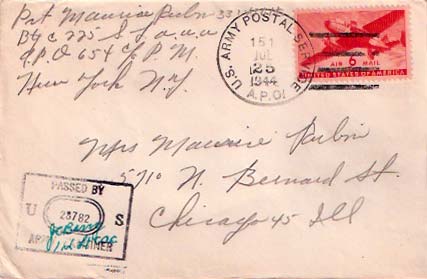 Pvt Maurice Rubin
Bty C 225 S L
A.P.O 654 c/o P.M.
New York N.Y.
U.S. ARMY POSTAL SERVICE
151
JUL
25
1944
A.P.O.
AIR 6 MAIL
UNITED STATES OF AMERICA
Mrs Maurice Rubin
5710 N. Bernard St.
Chicago 45 Ill
PASSED BY
U 23782 S
ARMY EXAMINER